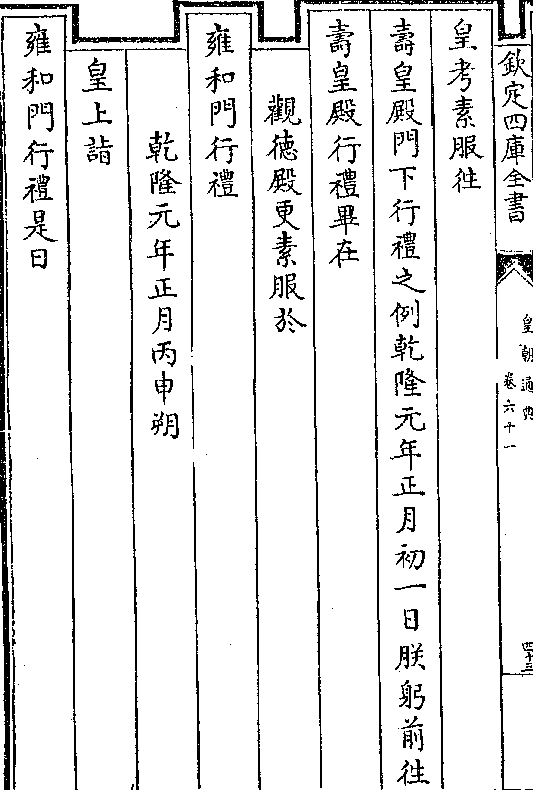 欽定四庫全書
皇朝通典
卷六十一
四十三
皇考素服往
壽皇殿門下行禮之例乾隆元年正月初一日朕躬前往
壽皇殿行禮畢在
觀德殿更素服於
雍和門行禮
乾隆元年正月丙申朔
皇上詣
雍和門行禮是日